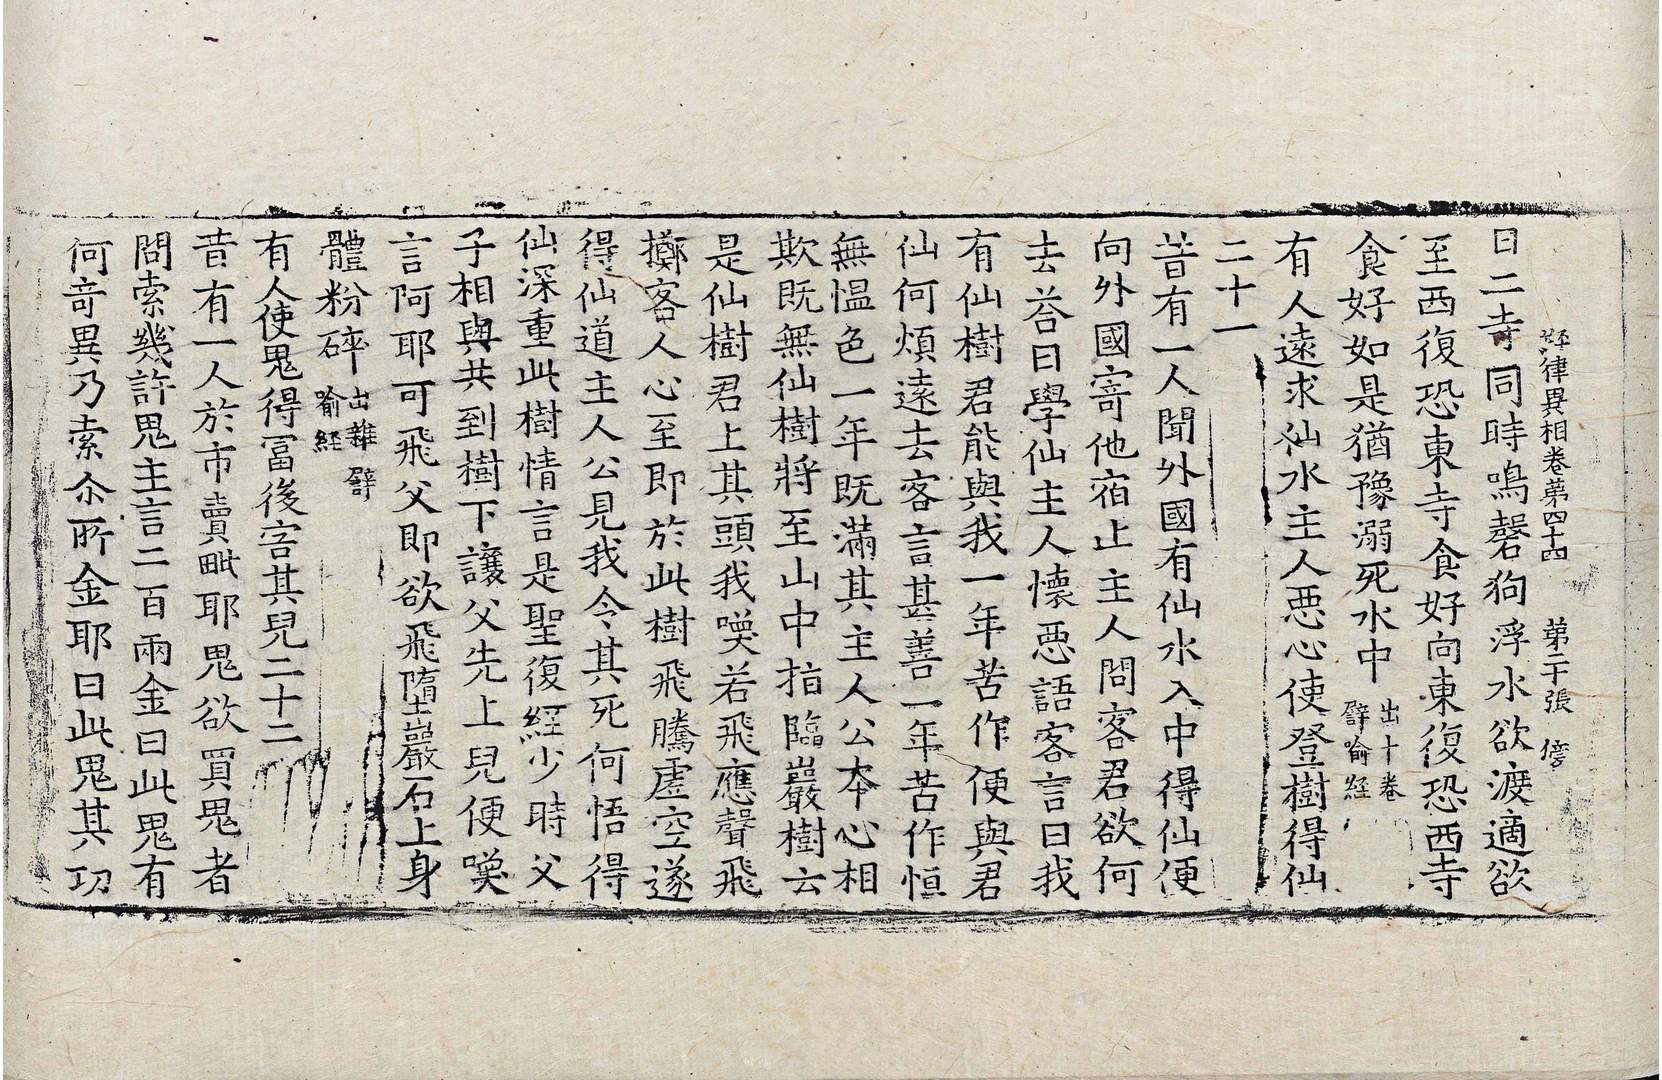 經律異相卷第四十四 第二十張 傍
日二寺同時鳴磬狗浮水欲渡適欲
至西復恐東寺食好向東復恐西寺
食好如是猶豫溺死水中 出十卷譬喻經
有人遠求仙水主人惡心使登樹得仙
二十一
昔有一人聞外國有仙水入中得仙便
向外國寄他宿止主人問客君欲何
去荅曰學仙主人懷惡語客言曰我
有仙樹君能與我一年苦作便與君
仙何煩遠去客言甚善一年苦作恒
無愠色一年既滿其主人公本心相
欺既無仙樹將至山中指臨巖樹云
是仙樹君上其頭我喚若飛應聲飛
擲客人心至即於此樹飛騰虛空遂
得仙道主人公見我令其死何悟得
仙深重此樹情言是聖復經少時父
子相與共到樹下讓父先上兒便喚
言阿耶可飛父即欲飛墮巖石上身
體粉碎 出雜譬喻經
有人使鬼得富後害其兒二十二
昔有一人於市賣毗耶鬼欲買鬼者
問索幾許鬼主言二百兩金曰此鬼有
何奇異乃索尒所金耶曰此鬼其功